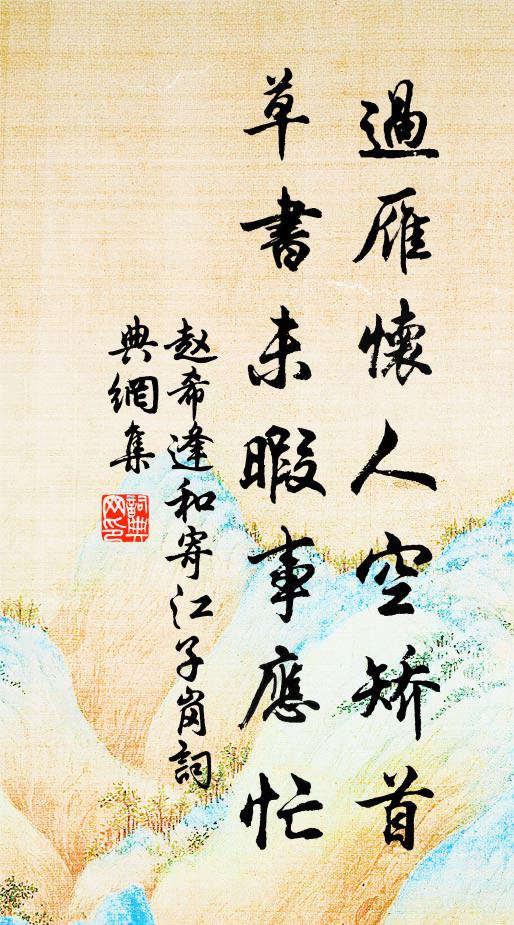 過雁懷人空矯首
草書未暇事應忙
赵希逢和寄江子崗詞
典網集
詞典網印